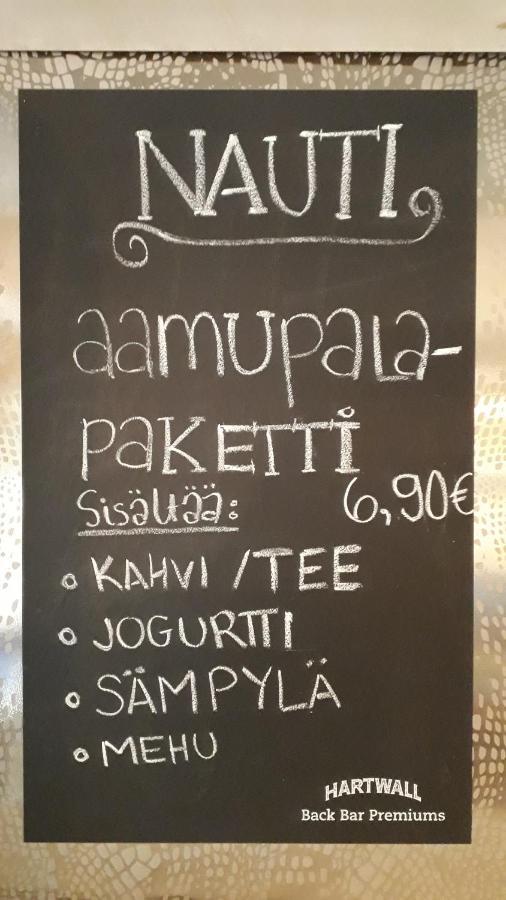 NAUTI
aamupala-
paKETTi
Sisältää: 6,90€
KAHVI / TEE
JOGURTTI
SÄMPYLÄ
MEHU
HARTWALL
Back Bar Premiums